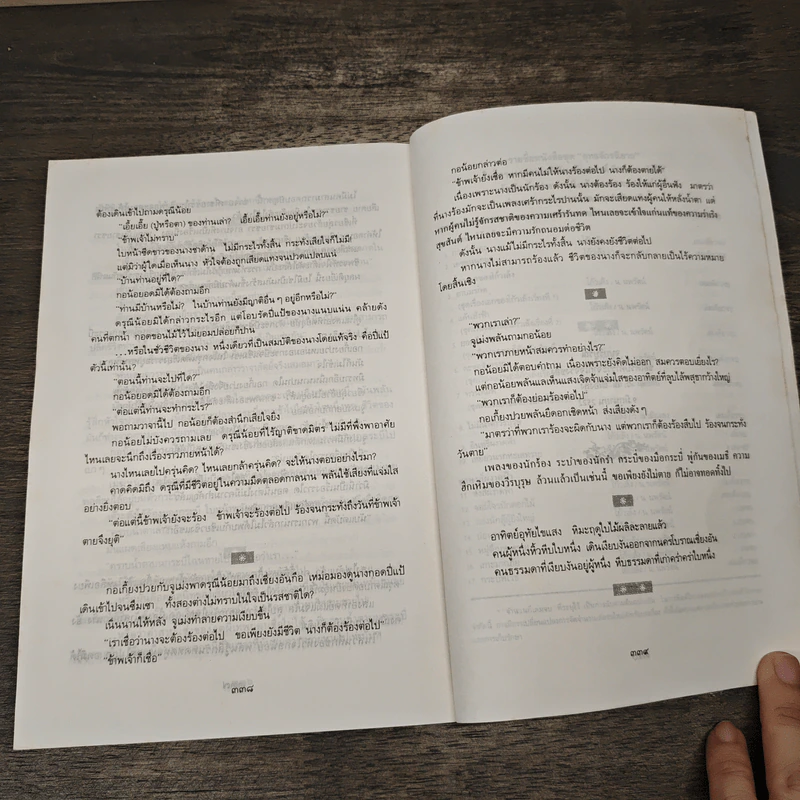 ต้องเดินเข้าไปถามดรุณีน้อย
"เอี้ยเอี้ย (ปู่หรือตา) ของท่านเล่า? เอี้ยเอี้ยท่านยังอยู่หรือไม่?"
"ข้าพเจ้าไม่ทราบ"
ใบหน้าซีดขาวของนางชาด้าน ไม่มีกระไรทั้งสิ้น กระทั่งเสียใจก็ไม่มี
แต่มิว่าผู้ใดเมื่อเห็นนาง หัวใจต้องถูกเสียดแทงจนปวดแปลบแน่
"บ้านท่านอยู่ที่ใด?"
กอน้อยอดมิได้ต้องถามอีก
"ท่านมีบ้านหรือไม่? ในบ้านท่านยังมีญาติอื่น ๆ อยู่อีกหรือไม่?"
ดรุณีน้อยมิได้กล่าวกระไรอีก แต่โอบรัดปี่แป้ของนางแนบแน่น คล้ายดัง
คนที่ตกน้ำ กอดขอนไม้ไว้ไม่ยอมปล่อยก็ปาน
...หรือในชั่วชีวิตของนาง หนึ่งเดียวที่เป็นสมบัติของนางโดยแท้จริง คือปี่แป้
ตัวนี้เท่านั้น?
"ตอนนี้ท่านจะไปที่ใด?"
กอน้อยอดมิได้ต้องถามอีก
"ต่อแต่นี้ท่านจะทำกระไร?"
พอถามวาจานี้ไป กอน้อยก็ต้องสำนึกเสียใจยิ่ง
กอน้อยไม่บังควรถามเลย ดรุณีน้อยที่ไร้ญาติขาดมิตร ไม่มีที่พึ่งพาอาศัย
ไหนเลยจะนึกถึงเรื่องราวภายหน้าได้?
นางไหนเลยไปครุ่นคิด? ไหนเลยกล้าครุ่นคิด? จะให้นางตอบอย่างไรมา?
คาดคิดมิถึง ดรุณีที่มีชีวิตอยู่ในความมืดตลอดกาลนาน พลันใช้เสียงที่แจ่มใส
อย่างยิ่งตอบ
"ต่อแต่นี้ข้าพเจ้ายังจะร้อง ข้าพเจ้าจะร้องต่อไป ร้องจนกระทั่งถึงวันที่ข้าพเจ้า
ตายจึงยุติ"
กอเกี้ยงปวยกับจูเม่งพาดรุณีน้อยมาถึงเชียงอันกือ เหม่อมองดูนางกอดปี่แป้
เดินเข้าไปจนซึมเซา ทั้งสองต่างไม่ทราบในใจเป็นรสชาติใด?
เนิ่นนานให้หลัง จูเม่งทำลายความเงียบขึ้น
"เราเชื่อว่านางจะต้องร้องต่อไป ขอเพียงยังมีชีวิต นางก็ต้องร้องต่อไป"
"ข้าพเจ้าก็เชื่อ"
๓๓๘
กอน้อยกล่าวต่อ
"ข้าพเจ้ายังเชื่อ หากมีคนไม่ให้นางร้องต่อไป นางก็ต้องตายได้"
เนื่องเพราะนางเป็นนักร้อง ดังนั้น นางต้องร้อง ร้องให้แก่ผู้อื่นฟัง มาตรว่า
ที่นางร้องมักจะเป็นเพลงเศร้ากระไรปานนั้น มักจะเสียดแทงผู้คนให้หลั่งน้ำตา แต่
หากผู้คนไม่รู้จักรสชาติของความเศร้ารันทด ไหนเลยจะเข้าใจแก่นแท้ของความร่าเริง
สุขสันต์ ไหนเลยจะมีความรักถนอมต่อชีวิต
ดังนั้น นางแม้ไม่มีกระไรทั้งสิ้น นางยังคงยังชีวิตต่อไป
หากนางไม่สามารถร้องแล้ว ชีวิตของนางก็จะกลับกลายเป็นไร้ความหมาย
โดยสิ้นเชิง
"พวกเราเล่า?"
จูเม่งพลันถามกอน้อย
"พวกเราภายหน้าสมควรทำอย่างไร?"
กอน้อยมิได้ตอบคำถาม เนื่องเพราะยังคิดไม่ออก สมควรตอบเยี่ยงไร?
แต่กอน้อยพลันแลเห็นแสงเจิดจ้าแจ่มใสของอาทิตย์ที่ลูบไล้พสุธากว้างใหญ่
"พวกเราก็ต้องย่อมร้องต่อไป"
กอเกี้ยงปวยพลันยืดอกเชิดหน้า ส่งเสียงดัง ๆ
"มาตรว่าที่พวกเราร้องจะผิดกับนาง แต่พวกเราก็ต้องร้องสืบไป ร้องจนกระทั่ง
วันตาย"
เพลงของนักร้อง ระบำของนักรำ กระบี่ของมือกระบี่ พู่กันของเมธี ความ
ฮึกเหิมของวีรบุรุษ ล้วนแล้วเป็นเช่นนี้ ขอเพียงยังไม่ตาย ก็ไม่อาจทอดทิ้งไป
อาทิตย์อุทัยไขแสง หิมะฤดูใบไม้ผลิละลายแล้ว
คนผู้หนึ่งหิ้วหีบใบหนึ่ง เดินเงียบงันออกจากนครโบราณเชียงอัน
คนธรรมดาที่เงียบงันอยู่ผู้หนึ่ง หีบธรรมดาที่เก่าคร่ำคร่าใบหนึ่ง
๓๓๙